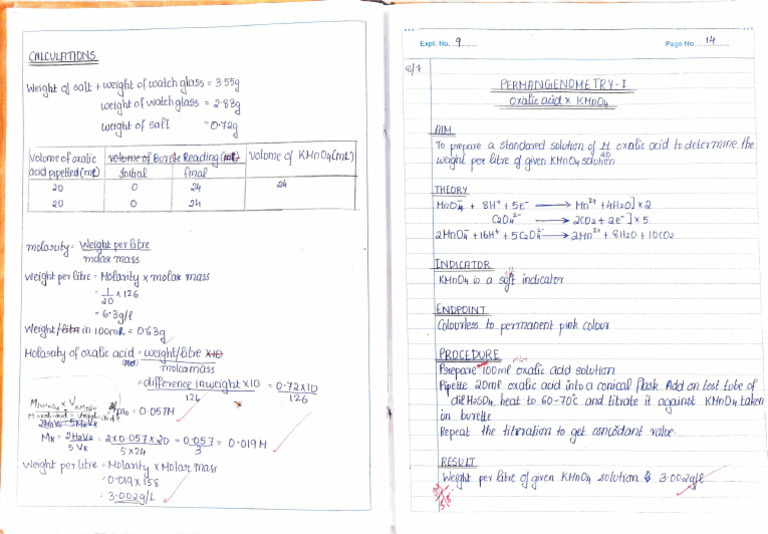 CALCULATIONS
Weight of salt + weight of watch glass = 3.55g
weight of watch glass = 2.83g
weight of salt = 0.72g
Volume of oxalic acid pipetted (mL) | Volume of Burette Reading (mL) | Volume of KMnO4 (mL)
Initial | Final
20 | 0 | 24 | 24
20 | 0 | 24
molarity = Weight per litre
molar mass
Weight per litre = Molarity x molar mass
= 1/20 x 126
= 6.3g/l
Weight/litre in 100ml = 0.63g
Molarity of oxalic acid = weight/litre x10
molar mass
= difference in weight x 10 = 0.72x10
126 126
Mo = 0.057M
2MoVo = 5MkVk
Mk = 2MoVo = 2 x 0.057 x 20 = 0.057 = 0.019M
5Vk 5x24 3
Weight per litre = Molarity x Molar mass
= 0.019 x 158
= 3.002g/l
Expt. No. 9
Page No. 14
PERMANGENOMETRY-I
Oxalic acid x KMnO4
AIM
To prepare a standared solution of M/20 oxalic acid to determine the
weight per litre of given KMnO4 solution
THEORY
MnO4- + 8H+ + 5e- → Mn2+ + 4H2O] x 2
C2O4 2- → 2CO2 + 2e-] x 5
2MnO4- + 16H+ + 5C2O4- → 2Mn2+ + 8H2O + 10CO2
INDICATOR
KMnO4 is a self indicator
ENDPOINT
Colourless to permanent pink colour
PROCEDURE
Prepare 100ml oxalic acid solution
Pipette 20ml oxalic acid into a conical flask Add on test tube of
dil H2SO4, heat to 60-70°c and titrate it against KMnO4 taken
in burette
Repeat the titeration to get concodant value.
RESULT
Weight per litre of given KMnO4 solution is 3.002g/l